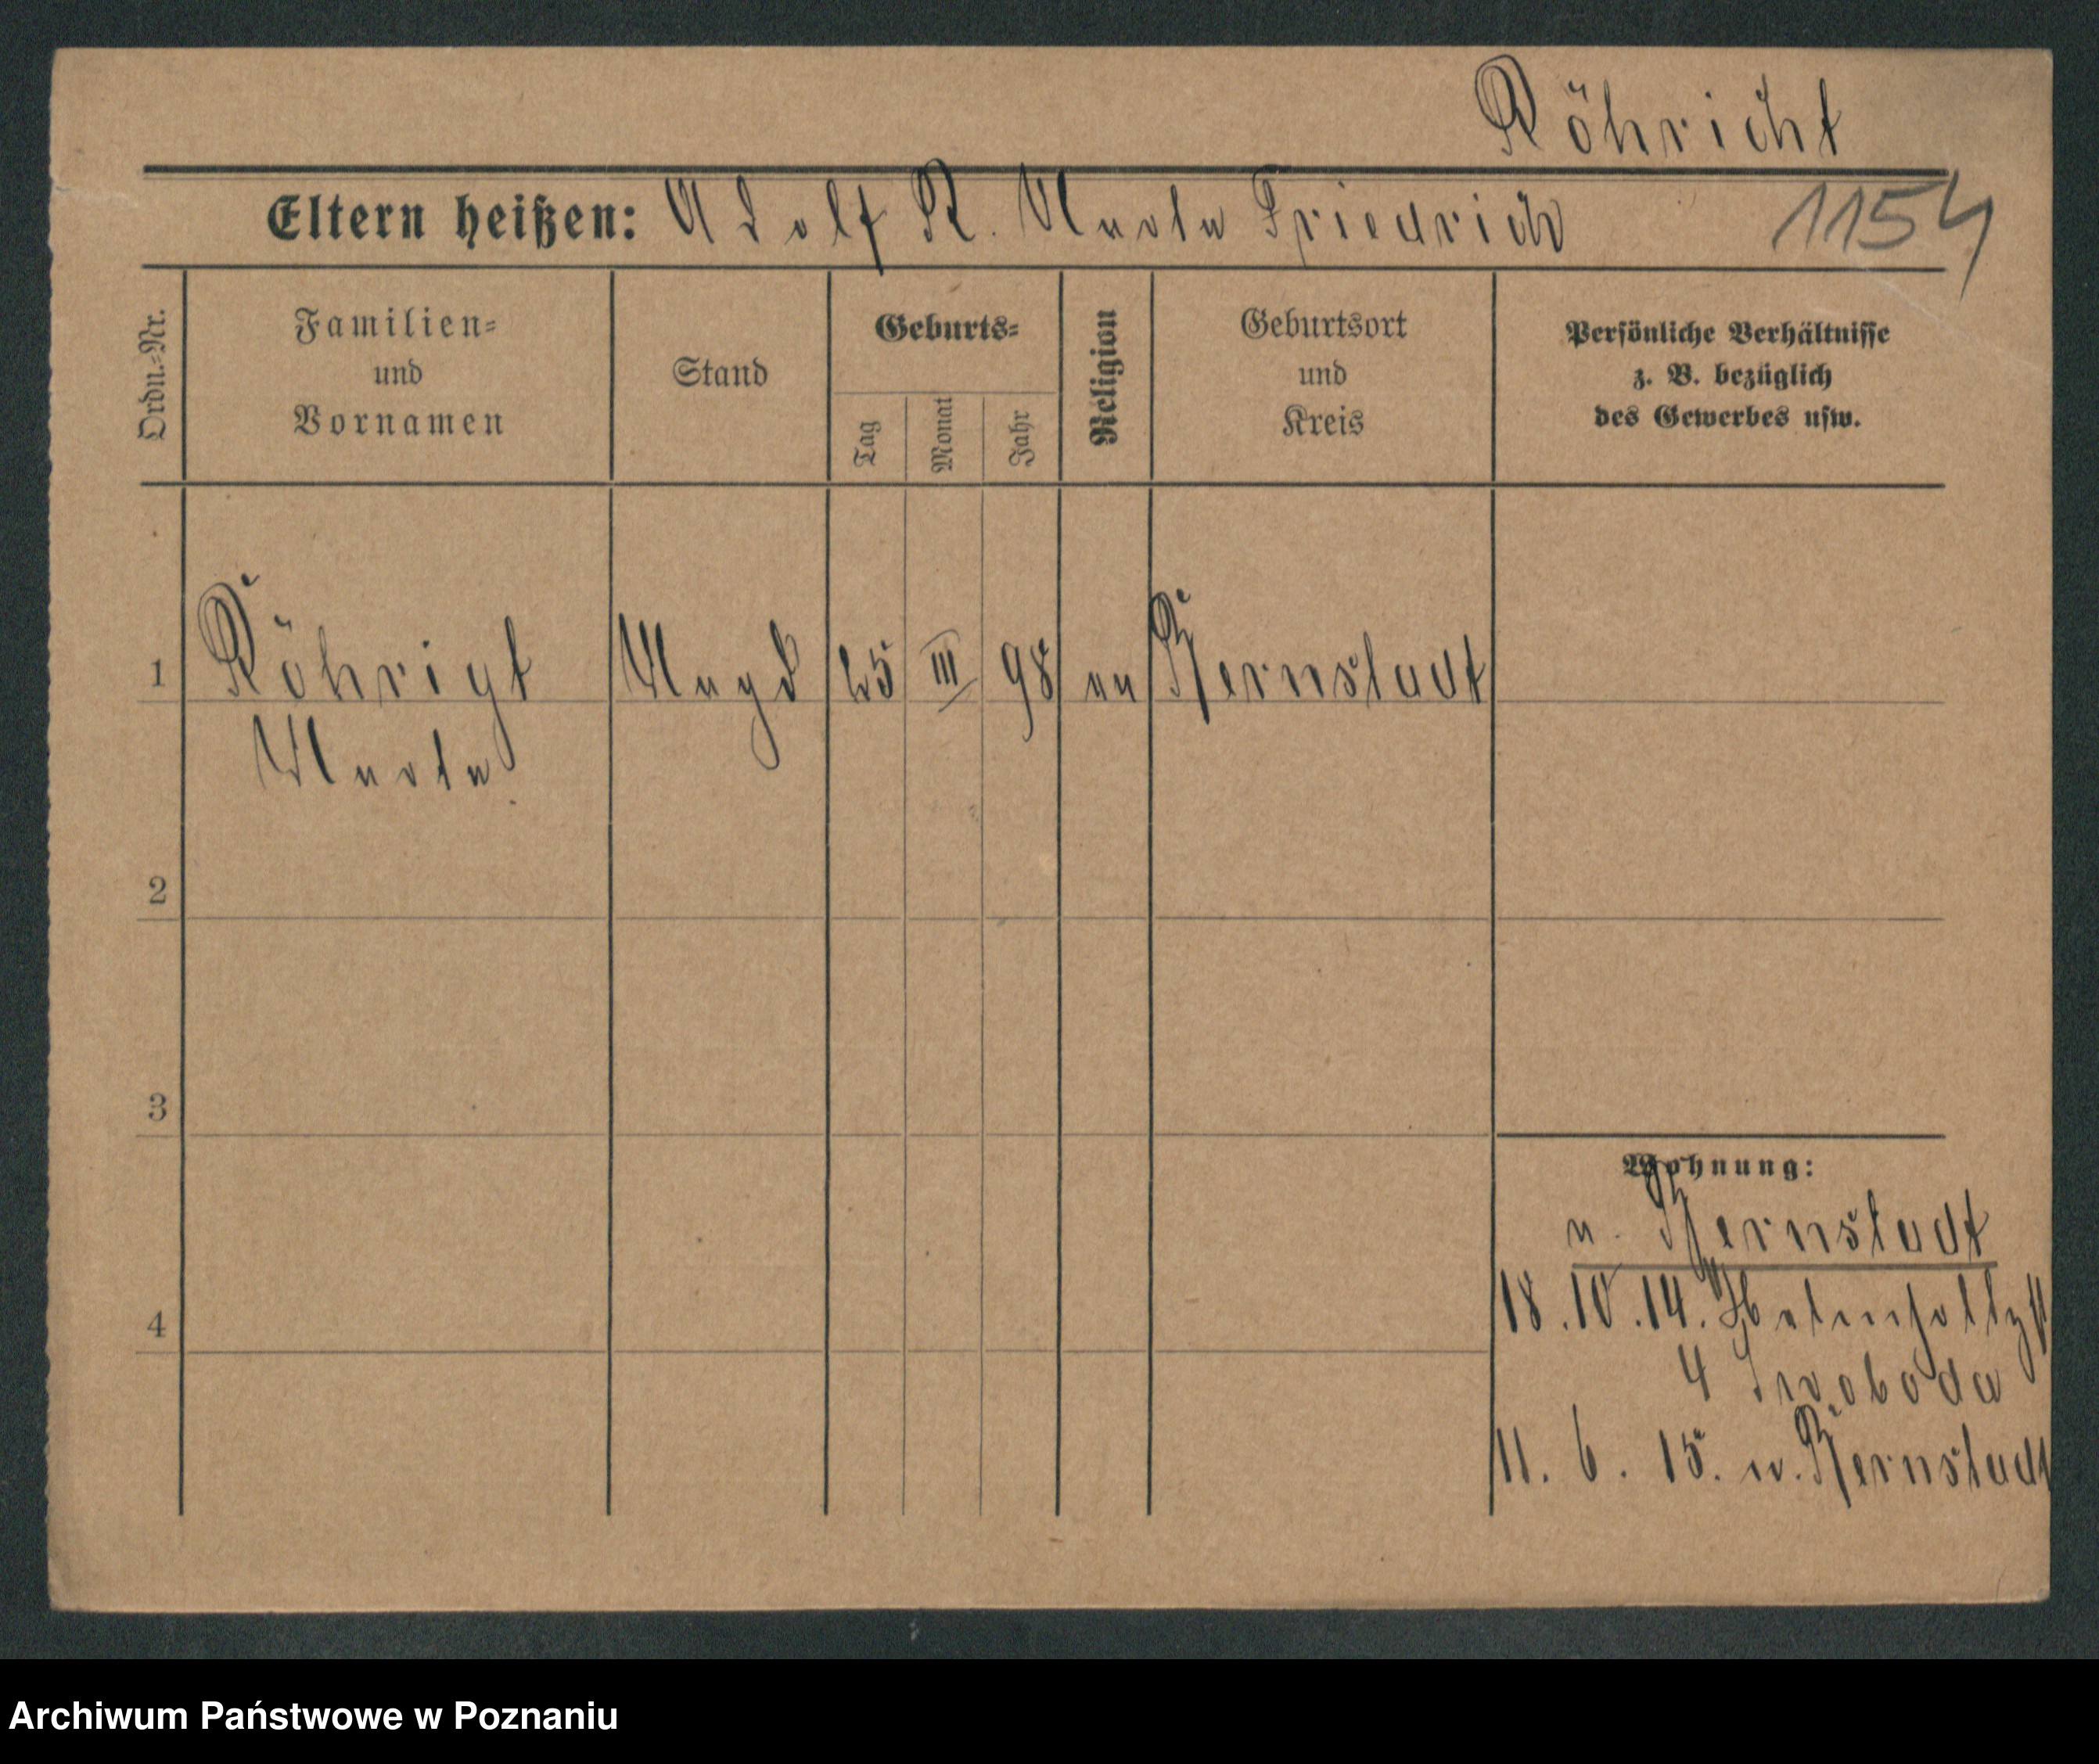 Röhricht
Eltern heißen: Adolf R. Marta Friedrich
1154
Ordn.-Nr.
Familien-
und
Vornamen
Stand
Geburts-
Tag
Monat
Jahr
Religion
Geburtsort
und
Kreis
Persönliche Verhältnisse
z. B. bezüglich
des Gewerbes usw.
1 Röhrigt Magd 25 III 98 ev Bernstadt
Marta
2
3
4
Wohnung:
v. Bernstadt
18.10.14.
4 Swoboda
11. 6. 15. n. Bernstadt
Archiwum Państwowe w Poznaniu